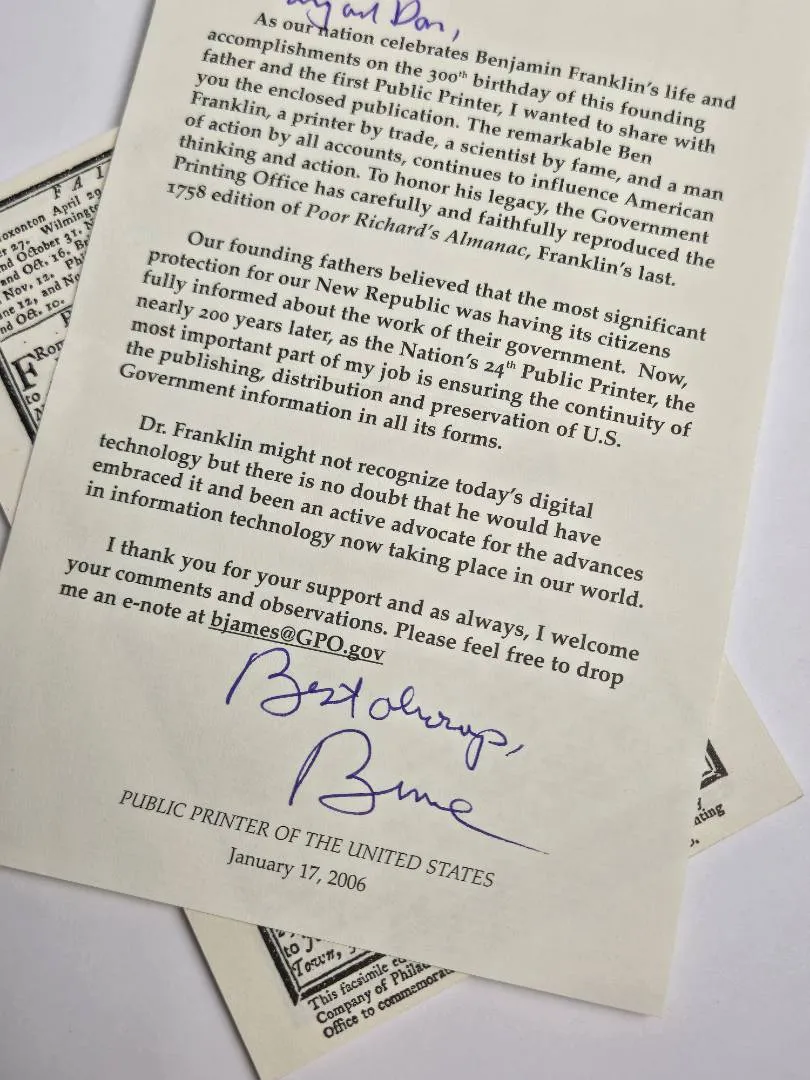 and Dan,
As our nation celebrates Benjamin Franklin's life and
accomplishments on the 300th birthday of this founding
father and the first Public Printer, I wanted to share with
you the enclosed publication. The remarkable Ben
Franklin, a printer by trade, a scientist by fame, and a man
of action by all accounts, continues to influence American
thinking and action. To honor his legacy, the Government
Printing Office has carefully and faithfully reproduced the
1758 edition of Poor Richard's Almanac, Franklin's last.
Our founding fathers believed that the most significant
protection for our New Republic was having its citizens
fully informed about the work of their government. Now,
nearly 200 years later, as the Nation's 24th Public Printer, the
most important part of my job is ensuring the continuity of
the publishing, distribution and preservation of U.S.
Government information in all its forms.
Dr. Franklin might not recognize today's digital
technology but there is no doubt that he would have
embraced it and been an active advocate for the advances
in information technology now taking place in our world.
I thank you for your support and as always, I welcome
your comments and observations. Please feel free to drop
me an e-note at bjames@GPO.gov
Best always,
Bruce
PUBLIC PRINTER OF THE UNITED STATES
January 17, 2006
F A I
oxonton April 29
r 27. Wilmingt
nd October 31, N
and Oct. 16. B
Nov. 12. Ph
ne 12, and No
nd Oct. 10.
FRom
to
ating
to J
Town,
This facsimile
Company of Phila
Office to commemora